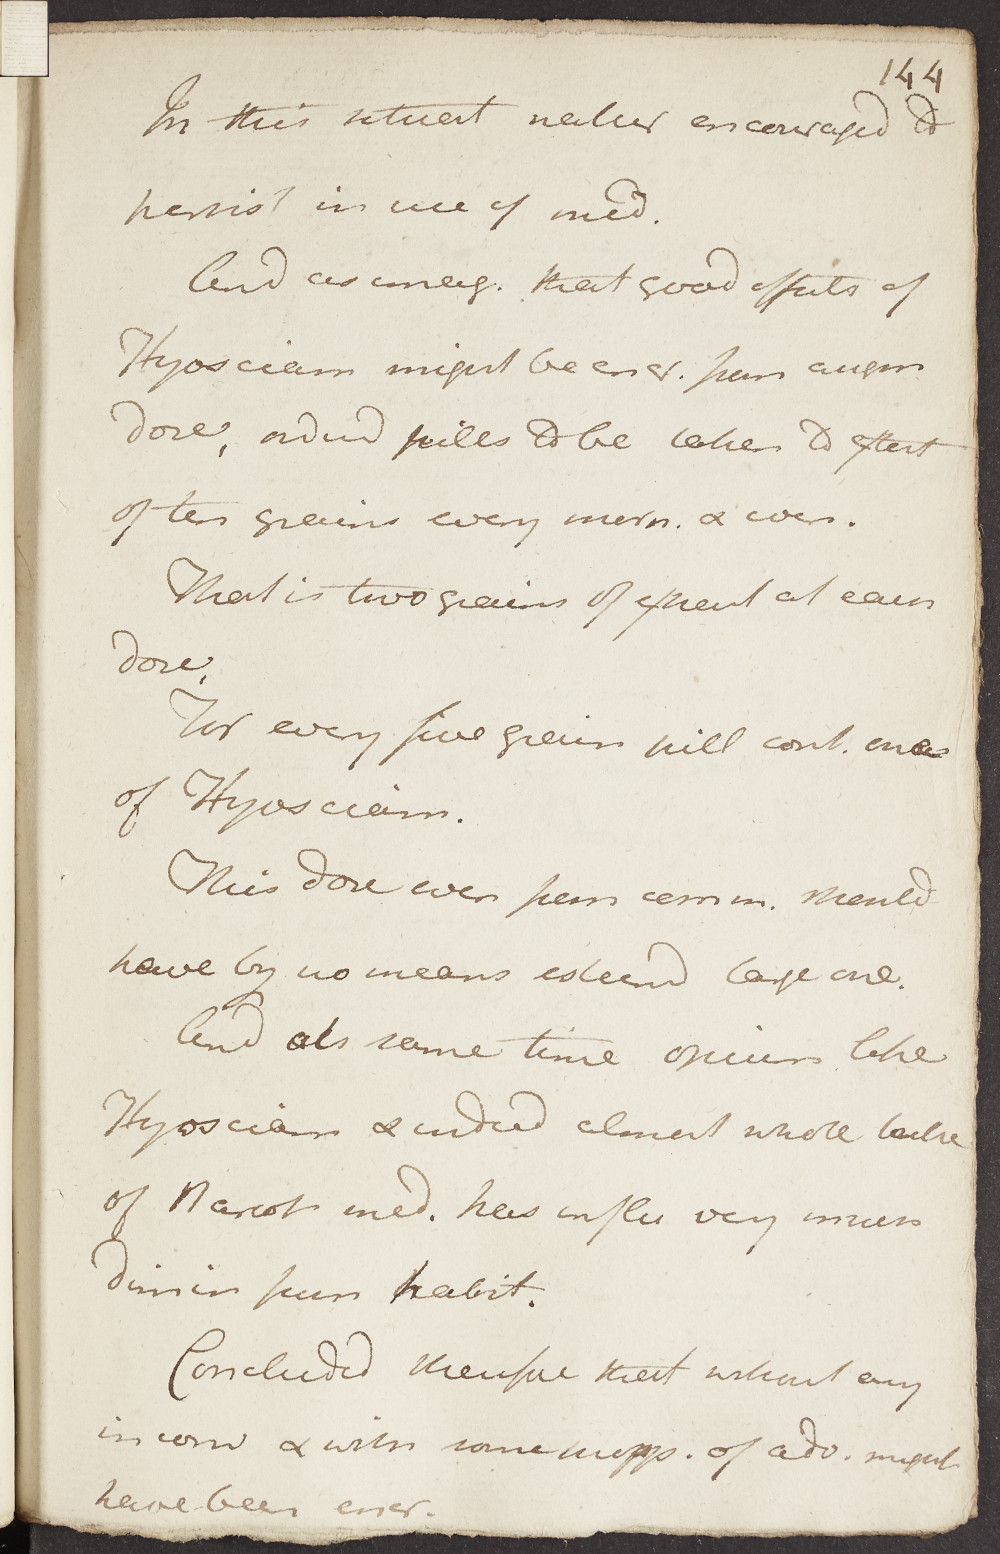 144
In this situat rather encouraged to
persist in use of med.
And as imag. that good effects of
Hyosciam might be encr. from augm
dose, ordered pills to be taken to extent
of ten grains every morn. & even.
That is two grains of extract at each
dose.
For every five grain pill cont. one
of Hyosciam.
This dose even from comm. should
have by no means esteemd large one.
And at same time opium like
Hyosciam & indeed almost whole
of Narcot med. has influ very much
dimin from habit.
Concluded therefore that without any
inconv & with some supp. of adv. might
have been encr.